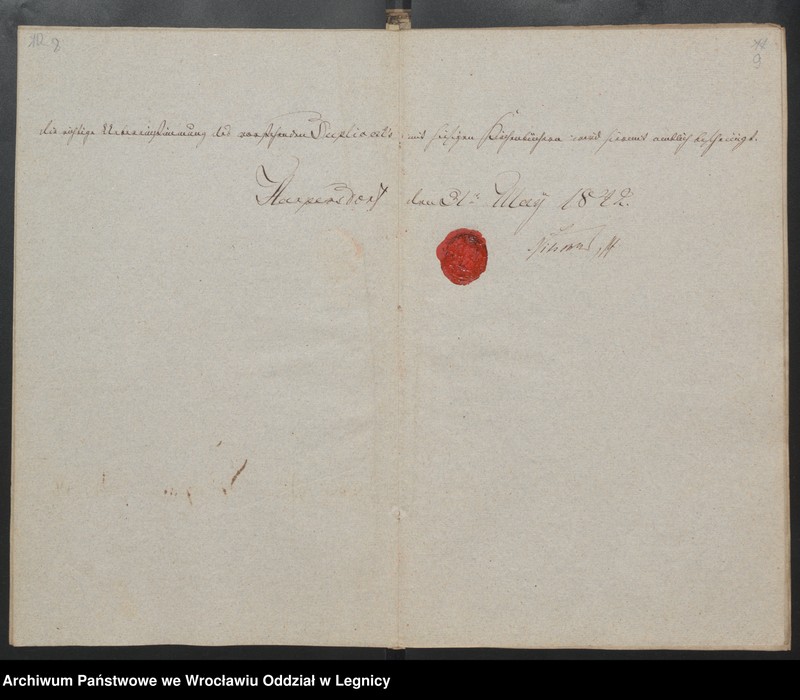 10. 8
9
Die richtige Uebereinstimmung des vorstehenden Duplicats mit hiesigen Kirchenbüchern wird hiermit amtlich bescheinigt.
Harpersdorf den 31t May 1842.
Archiwum Państwowe we Wrocławiu Oddział w Legnicy